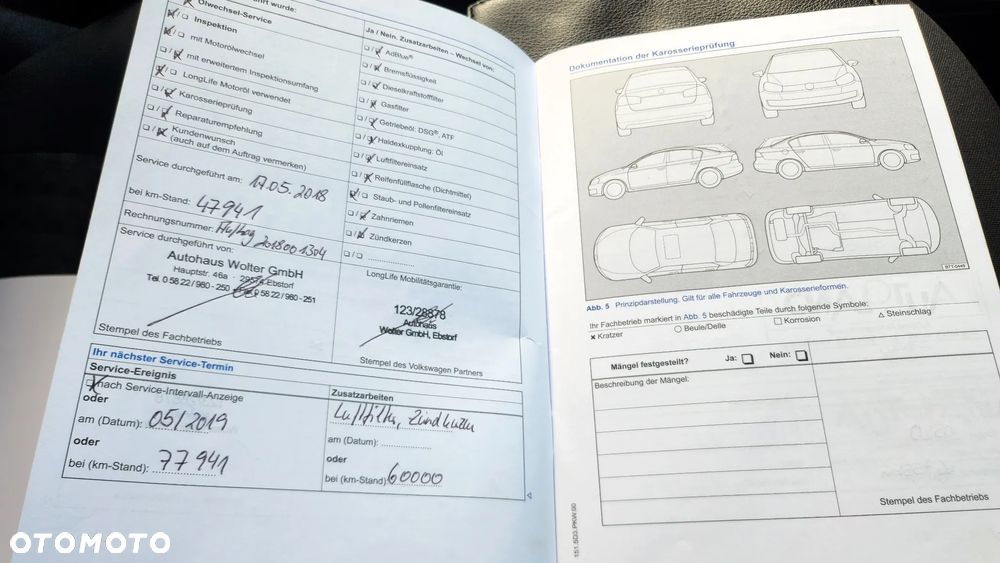 Ölwechsel-Service
Inspektion
mit Motorölwechsel
mit erweitertem Inspektionsumfang
LongLife Motoröl verwendet
Karosserieprüfung
Reparaturempfehlung
Kundenwunsch
(auch auf dem Auftrag vermerken)
Service durchgeführt am: 17.05.2018
bei km-Stand: 47941
Rechnungsnummer: Auftrag 2018001304
Service durchgeführt von:
Autohaus Wolter GmbH
Hauptstr. 46a - 29574 Ebstorf
Tel. 0 58 22 / 960 - 250 0 58 22 / 960 - 251
Stempel des Fachbetriebs
Ja / Nein. Zusatzarbeiten – Wechsel von:
AdBlue®
Bremsflüssigkeit
Dieselkraftstofffilter
Gasfilter
Getriebeöl: DSG®, ATF
Haldexkupplung: Öl
Luftfiltereinsatz
Reifenfüllflasche (Dichtmittel)
Staub- und Pollenfiltereinsatz
Zahnriemen
Zündkerzen
LongLife Mobilitätsgarantie:
123/28878
Autohaus
Wolter GmbH, Ebstorf
Stempel des Volkswagen Partners
Ihr nächster Service-Termin
Service-Ereignis
nach Service-Intervall-Anzeige
oder
am (Datum): 05/2019
oder
bei (km-Stand): 77941
Zusatzarbeiten
Luftfilter, Zündkerzen
am (Datum):
oder
bei (km-Stand): 60000
Dokumentation der Karosserieprüfung
B7T-0449
Abb. 5 Prinzipdarstellung. Gilt für alle Fahrzeuge und Karosserieformen.
Ihr Fachbetrieb markiert in Abb. 5 beschädigte Teile durch folgende Symbole:
× Kratzer ○ Beule/Delle □ Korrosion △ Steinschlag
Mängel festgestellt? Ja: Nein:
Beschreibung der Mängel:
Stempel des Fachbetriebs
151.5D3.PKW.00
OTOMOTO